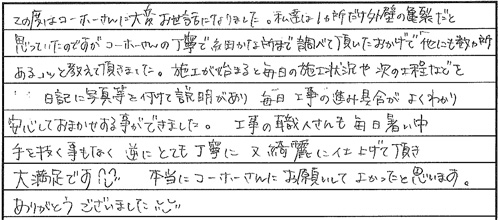 この度はコーホーさんに大変お世話になりました。私達は1か所だけ外壁の亀裂だと
思っていたのですがコーホーさんの丁寧で細かな所まで調べて頂いたおかげで他にも数か所
あるコッと教えて頂きました。施工が始まると毎日の施工状況や次の工程などを
日記に写真等を付けて説明があり 毎日工事の進み具合がよくわかり
安心しておまかせする事ができました。 工事の職人さんも毎日暑い中
手を抜く事もなく 逆にとても丁寧に 又綺麗に仕上げて頂き
大満足です 本当にコーホーさんにお願いして よかったと思います。
ありがとう ございました